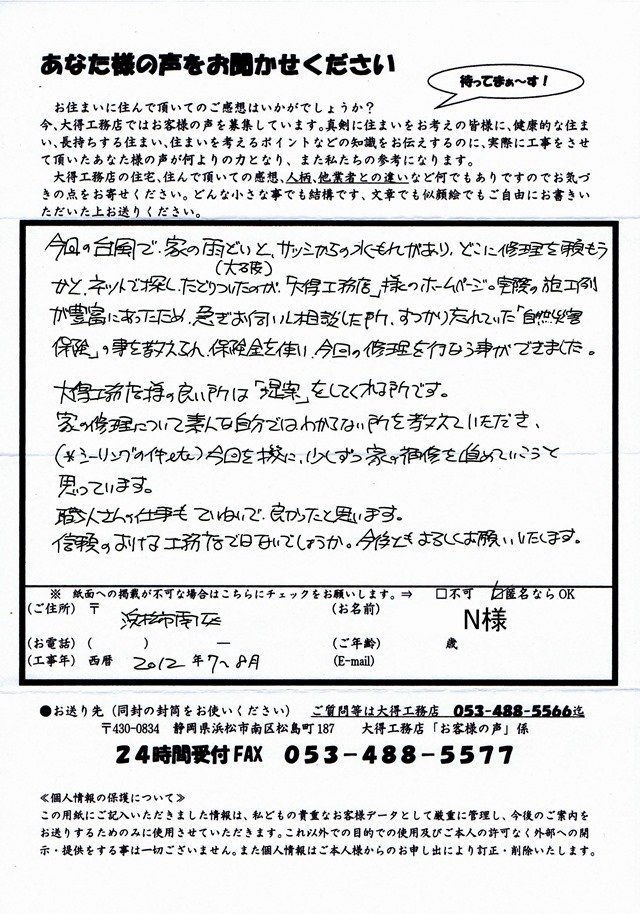 あなた様の声をお聞かせください
待ってまぁ～す！
お住まいに住んで頂いてのご感想はいかがでしょうか？
今、大得工務店ではお客様の声を募集しています。真剣に住まいをお考えの皆様に、健康的な住ま
い、長持ちする住まい、住まいを考えるポイントなどの知識をお伝えするのに、実際に工事をさせ
て頂いたあなた様の声が何よりの力となり、また私たちの参考になります。
大得工務店の住宅、住んで頂いての感想、人柄、他業者との違いなど何でもありますのでお気づ
きの点をお寄せください。どんな小さな事でも結構です、文章でも似顔絵でもご自由にお書きい
ただいた上お送りください。
今回の台風で、家の雨どいと、サッシからの水もれがあり、どこに修理を頼もう
(大破)
かと、ネットで探し、たどりついたのが、「大得工務店」様のホームページ。実際の施工例
が豊富にあったため、急ぎお伺いし相談した所、すっかり忘れていた「自然災害
保険」の事を教えられ、保険金を使い、今回の修理を行なう事ができました。
大得工務店様の良い所は「提案」をしてくれる所です。
家の修理について素人な自分ではわからない所を教えていただき、
(※シーリングの件etc)今回を機に、少しずつ家の補修を進めていこうと
思っています。
職人さんの仕事もていねいで、良かったと思います。
信頼のおける工務店ではないでしょうか。今後ともよろしくお願いいたします。
※ 紙面への掲載が不可な場合はこちらにチェックをお願いします。⇒ □不可 ☑匿名ならOK
(ご住所) 〒 浜松市南区 (お名前) N様
(お電話) ( ) ― (ご年齢) 歳
(工事年) 西暦 2012年7～8月 (E-mail)
●お送り先（同封の封筒をお使いください） ご質問等は大得工務店 053-488-5566迄
〒430-0834 静岡県浜松市南区松島町187 大得工務店「お客様の声」係
24時間受付FAX 053-488-5577
≪個人情報の保護について≫
この用紙にご記入いただきました情報は、私どもの貴重なお客様データとして厳重に管理し、今後のご案内を
お送りするためのみに使用させていただきます。これ以外での目的での使用及びご本人の許可なく外部への開
示・提供をする事は一切ございません。また個人情報はご本人様からのお申し出により訂正・削除いたします。